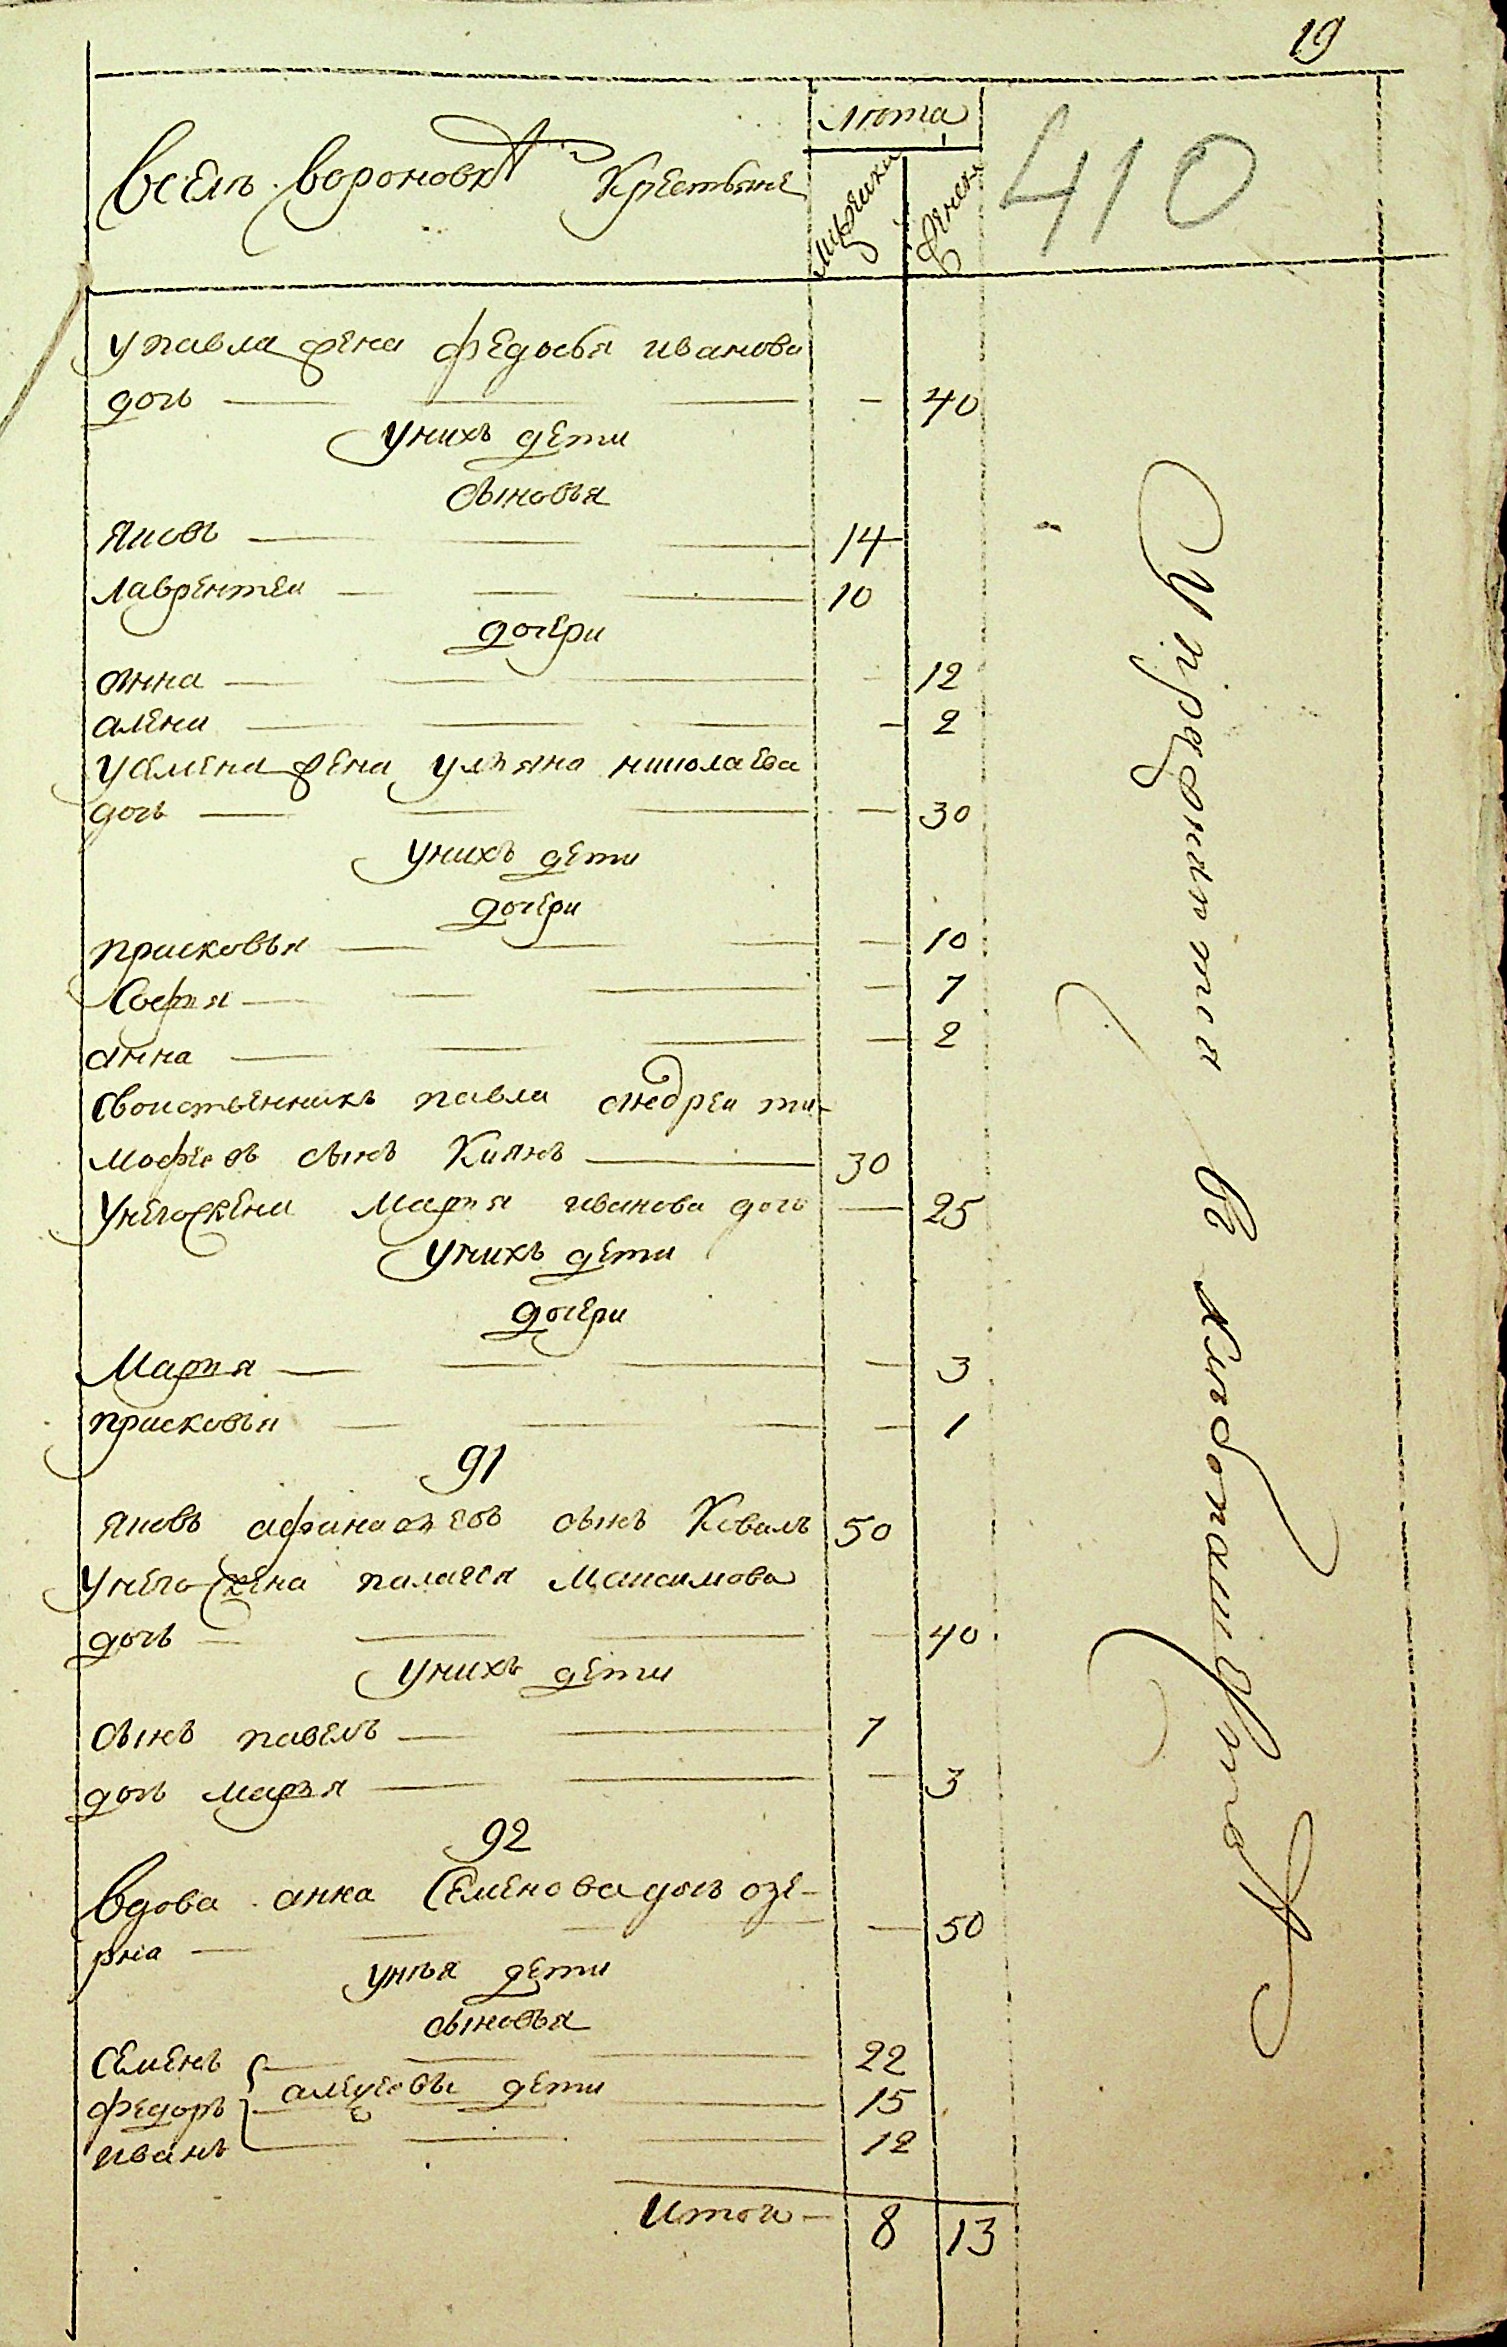 19
всели вороновкѣ Крестьяне
лѣта
мужеска
женска
410
у павла жена федосья иванова
дочь — 40
у нихъ дети
сыновья
яковъ — 14
лаврентеи — 10
дочери
анна — 12
алена — 2
у семена жена ульяна николаева
дочь — 30
у нихъ дети
дочери
присковья — 10
Софья — 7
анна — 2
Своиственникъ павла андреи ти-
мофеевъ сынъ — 30
У него жена Марья иванова дочь — 25
У нихъ дети
дочери
Марья — 3
присковья — 1
91
яковъ афанасьевъ сынъ Коваль 50
У него жена палагея Максимова
дочь — 40
У нихъ дети
сынъ павелъ — 7
дочь марья — 3
92
Вдова анна Семенова дочь озе-
рна — 50
у нея дети
сыновья
Семенъ — 22
федоръ — 15
алексеевы дети
иванъ — 12
Итого — 8 13